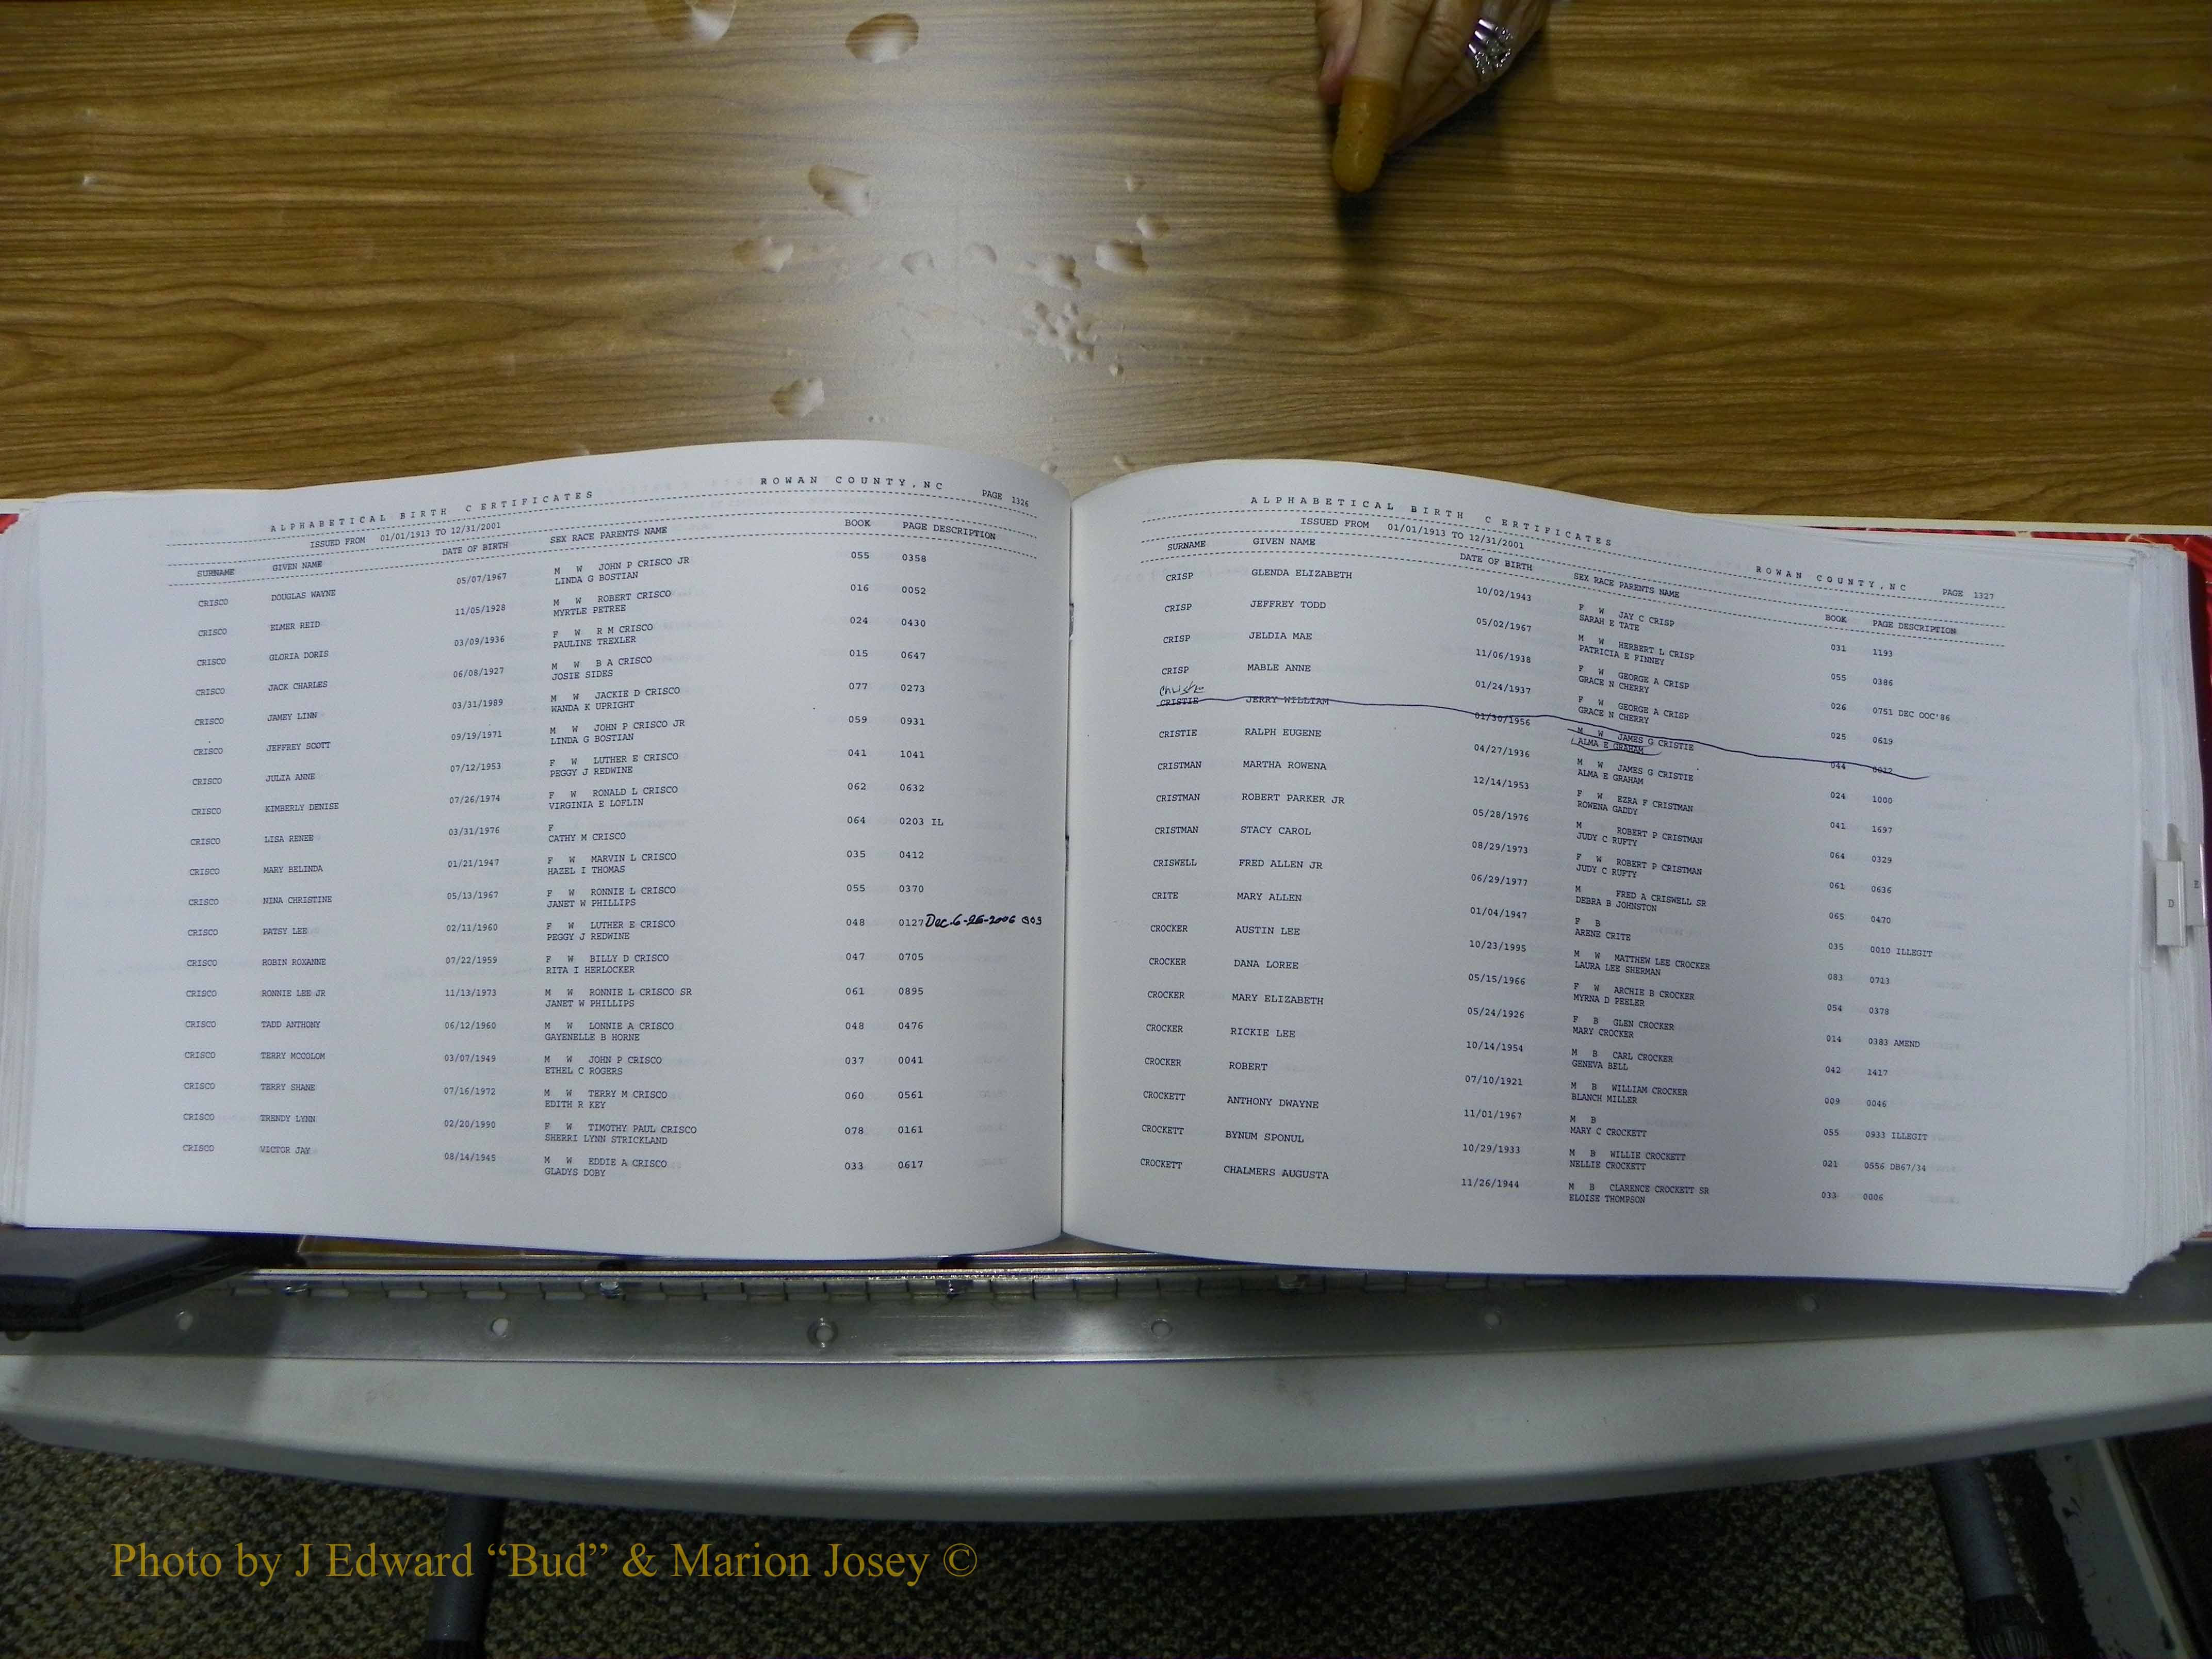 ALPHABETICAL BIRTH CERTIFICATES ROWAN COUNTY, NC PAGE 1326
ISSUED FROM 01/01/1913 TO 12/31/2001
SURNAME GIVEN NAME DATE OF BIRTH SEX RACE PARENTS NAME BOOK PAGE DESCRIPTION
CRISCO DOUGLAS WAYNE 05/07/1967 M W JOHN P CRISCO JR 055 0358
LINDA G BOSTIAN
CRISCO ELMER REID 11/05/1928 M W ROBERT CRISCO 016 0052
MYRTLE PETREE
CRISCO GLORIA DORIS 03/09/1936 F W R M CRISCO 024 0430
PAULINE TREXLER
CRISCO JACK CHARLES 06/08/1927 M W B A CRISCO 015 0647
JOSIE SIDES
CRISCO JAMEY LINN 03/31/1989 M W JACKIE D CRISCO 077 0273
WANDA K UPRIGHT
CRISCO JEFFREY SCOTT 09/19/1971 M W JOHN P CRISCO JR 059 0931
LINDA G BOSTIAN
CRISCO JULIA ANNE 07/12/1953 F W LUTHER E CRISCO 041 1041
PEGGY J REDWINE
CRISCO KIMBERLY DENISE 07/26/1974 F W RONALD L CRISCO 062 0632
VIRGINIA E LOFLIN
CRISCO LISA RENEE 03/31/1976 F 064 0203 IL
CATHY M CRISCO
CRISCO MARY BELINDA 01/21/1947 F W MARVIN L CRISCO 035 0412
HAZEL I THOMAS
CRISCO NINA CHRISTINE 05/13/1967 F W RONNIE L CRISCO 055 0370
JANET W PHILLIPS
CRISCO PATSY LEE 02/11/1960 F W LUTHER E CRISCO 048 0127 Dec. 6-26-2006 903
PEGGY J REDWINE
CRISCO ROBIN ROXANNE 07/22/1959 F W BILLY D CRISCO 047 0705
RITA I HERLOCKER
CRISCO RONNIE LEE JR 11/13/1973 M W RONNIE L CRISCO SR 061 0895
JANET W PHILLIPS
CRISCO TADD ANTHONY 06/12/1960 M W LONNIE A CRISCO 048 0476
GAYENELLE B HORNE
CRISCO TERRY MCCOLOM 03/07/1949 M W JOHN P CRISCO 037 0041
ETHEL C ROGERS
CRISCO TERRY SHANE 07/16/1972 M W TERRY M CRISCO 060 0561
EDITH R KEY
CRISCO TRENDY LYNN 02/20/1990 F W TIMOTHY PAUL CRISCO 078 0161
SHERRI LYNN STRICKLAND
CRISCO VICTOR JAY 08/14/1945 M W EDDIE A CRISCO 033 0617
GLADYS DOBY
ALPHABETICAL BIRTH CERTIFICATES ROWAN COUNTY, NC PAGE 1327
ISSUED FROM 01/01/1913 TO 12/31/2001
SURNAME GIVEN NAME DATE OF BIRTH SEX RACE PARENTS NAME BOOK PAGE DESCRIPTION
CRISP GLENDA ELIZABETH 10/02/1943 F W JAY C CRISP 031 1193
SARAH E TATE
CRISP JEFFREY TODD 05/02/1967 M W HERBERT L CRISP 055 0386
PATRICIA E FINNEY
CRISP JELDIA MAE 11/06/1938 F W GEORGE A CRISP 026 0751 DEC OOC'86
GRACE N CHERRY
CRISP MABLE ANNE 01/24/1937 F W GEORGE A CRISP 025 0619
GRACE N CHERRY
CRISTIE JERRY WILLIAM 01/30/1956 M W JAMES G CRISTIE 044 0012
ALMA E GRAHAM
CRISTIE RALPH EUGENE 04/27/1936 M W JAMES G CRISTIE 024 1000
ALMA E GRAHAM
CRISTMAN MARTHA ROWENA 12/14/1953 F W EZRA F CRISTMAN 041 1697
ROWENA GADDY
CRISTMAN ROBERT PARKER JR 05/28/1976 M ROBERT P CRISTMAN 064 0329
JUDY C RUFTY
CRISTMAN STACY CAROL 08/29/1973 F W ROBERT P CRISTMAN 061 0636
JUDY C RUFTY
CRISWELL FRED ALLEN JR 06/29/1977 M FRED A CRISWELL SR 065 0470
DEBRA B JOHNSTON
CRITE MARY ALLEN 01/04/1947 F B 035 0010 ILLEGIT
ARENE CRITE
CROCKER AUSTIN LEE 10/23/1995 M W MATTHEW LEE CROCKER 083 0713
LAURA LEE SHERMAN
CROCKER DANA LOREE 05/15/1966 F W ARCHIE B CROCKER 054 0378
MYRNA D PEELER
CROCKER MARY ELIZABETH 05/24/1926 F B GLEN CROCKER 014 0383 AMEND
MARY CROCKER
CROCKER RICKIE LEE 10/14/1954 M B CARL CROCKER 042 1417
GENEVA BELL
CROCKER ROBERT 07/10/1921 M B WILLIAM CROCKER 009 0046
BLANCH MILLER
CROCKETT ANTHONY DWAYNE 11/01/1967 M B 055 0933 ILLEGIT
MARY C CROCKETT
CROCKETT BYNUM SPONUL 10/29/1933 M B WILLIE CROCKETT 021 0556 DB67/34
NELLIE CROCKETT
CROCKETT CHALMERS AUGUSTA 11/26/1944 M B CLARENCE CROCKETT SR 033 0006
ELOISE THOMPSON
D
Photo by J Edward “Bud” & Marion Josey ©